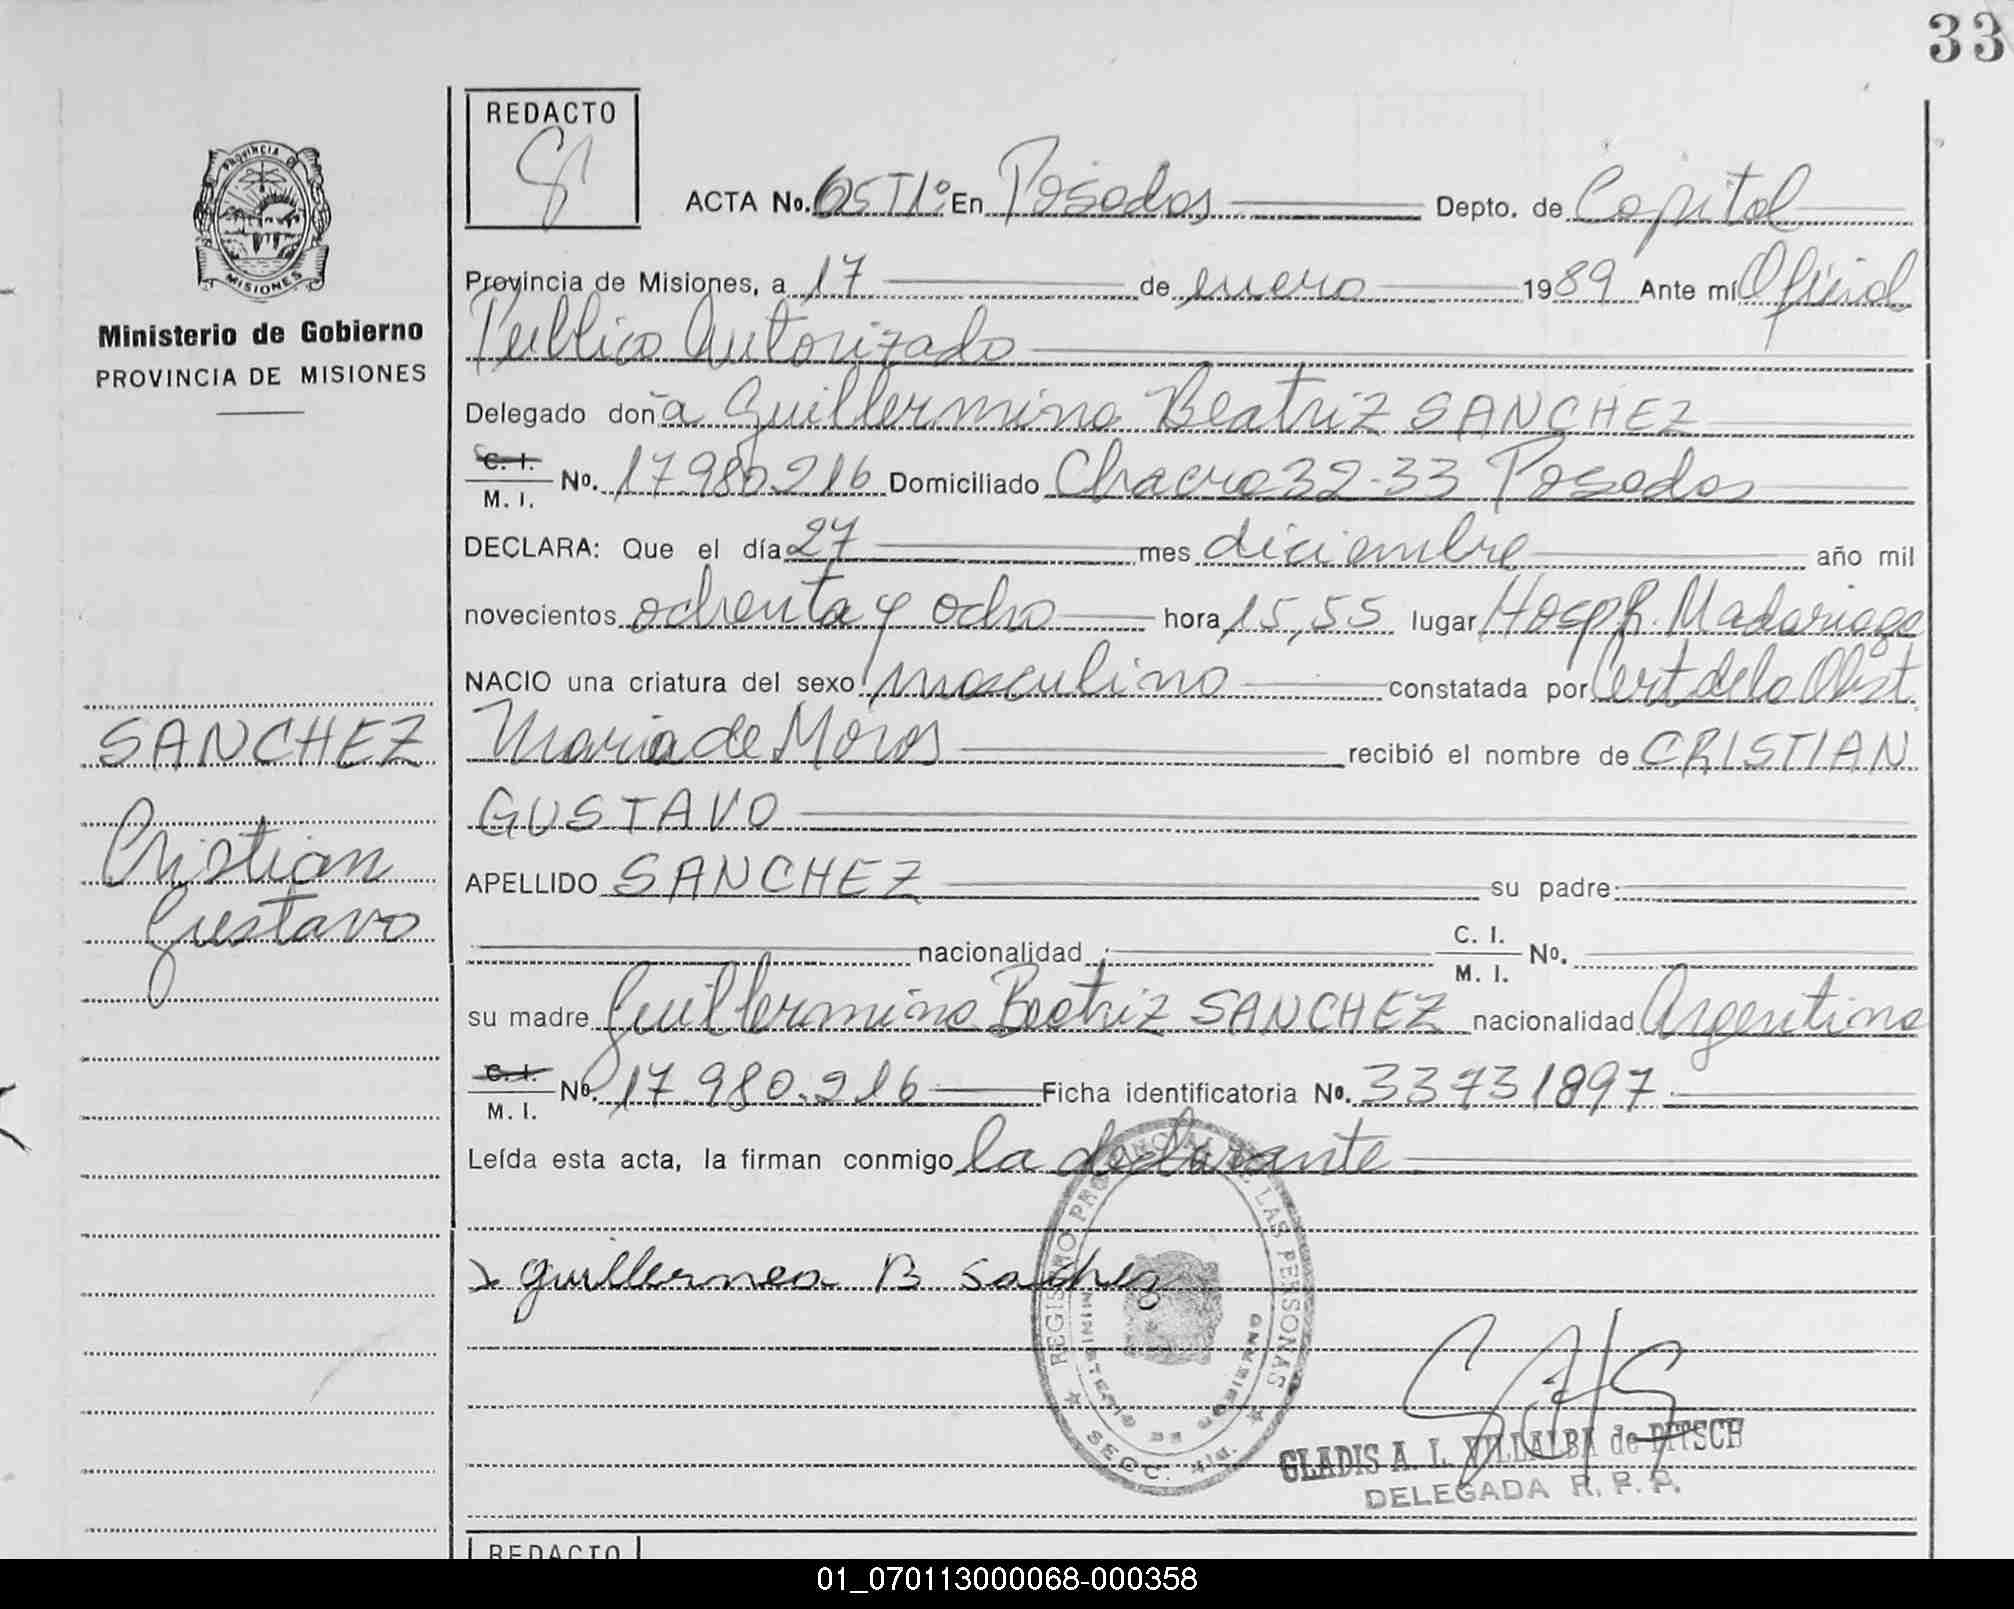 33
REDACTO
PROVINCIA DE
MISIONES
Ministerio de Gobierno
PROVINCIA DE MISIONES
ACTA No. 65T1º En Posadas Depto. de Capital
Provincia de Misiones, a 17 de enero 1989 Ante mí Oficial
Publico Autorizado
Delegado doña Guillermina Beatriz SANCHEZ
C. I.
M. I. No. 17.980.216 Domiciliado Chacra 32-33 Posadas
DECLARA: Que el día 27 mes diciembre año mil
novecientos ochenta y ocho hora 15,55 lugar Hosp. R. Madariaga
NACIO una criatura del sexo masculino constatada por Cert de la Obst.
Maria de Moros recibió el nombre de CRISTIAN
GUSTAVO
APELLIDO SANCHEZ su padre
nacionalidad C. I.
M. I. No.
su madre Guillermina Beatriz SANCHEZ nacionalidad Argentina
C. I.
M. I. No. 17.980.216 Ficha identificatoria No. 33731897
Leída esta acta, la firman conmigo la declarante
SANCHEZ
Cristian
Gustavo
guillermea B Sanchez
REGISTRO PROVINCIAL DE LAS PERSONAS
MINISTERIO DE GOBIERNO
SECC.
GLADIS A. L. VILLALBA de PITSCH
DELEGADA R. P. P.
REDACTO
01_070113000068-000358